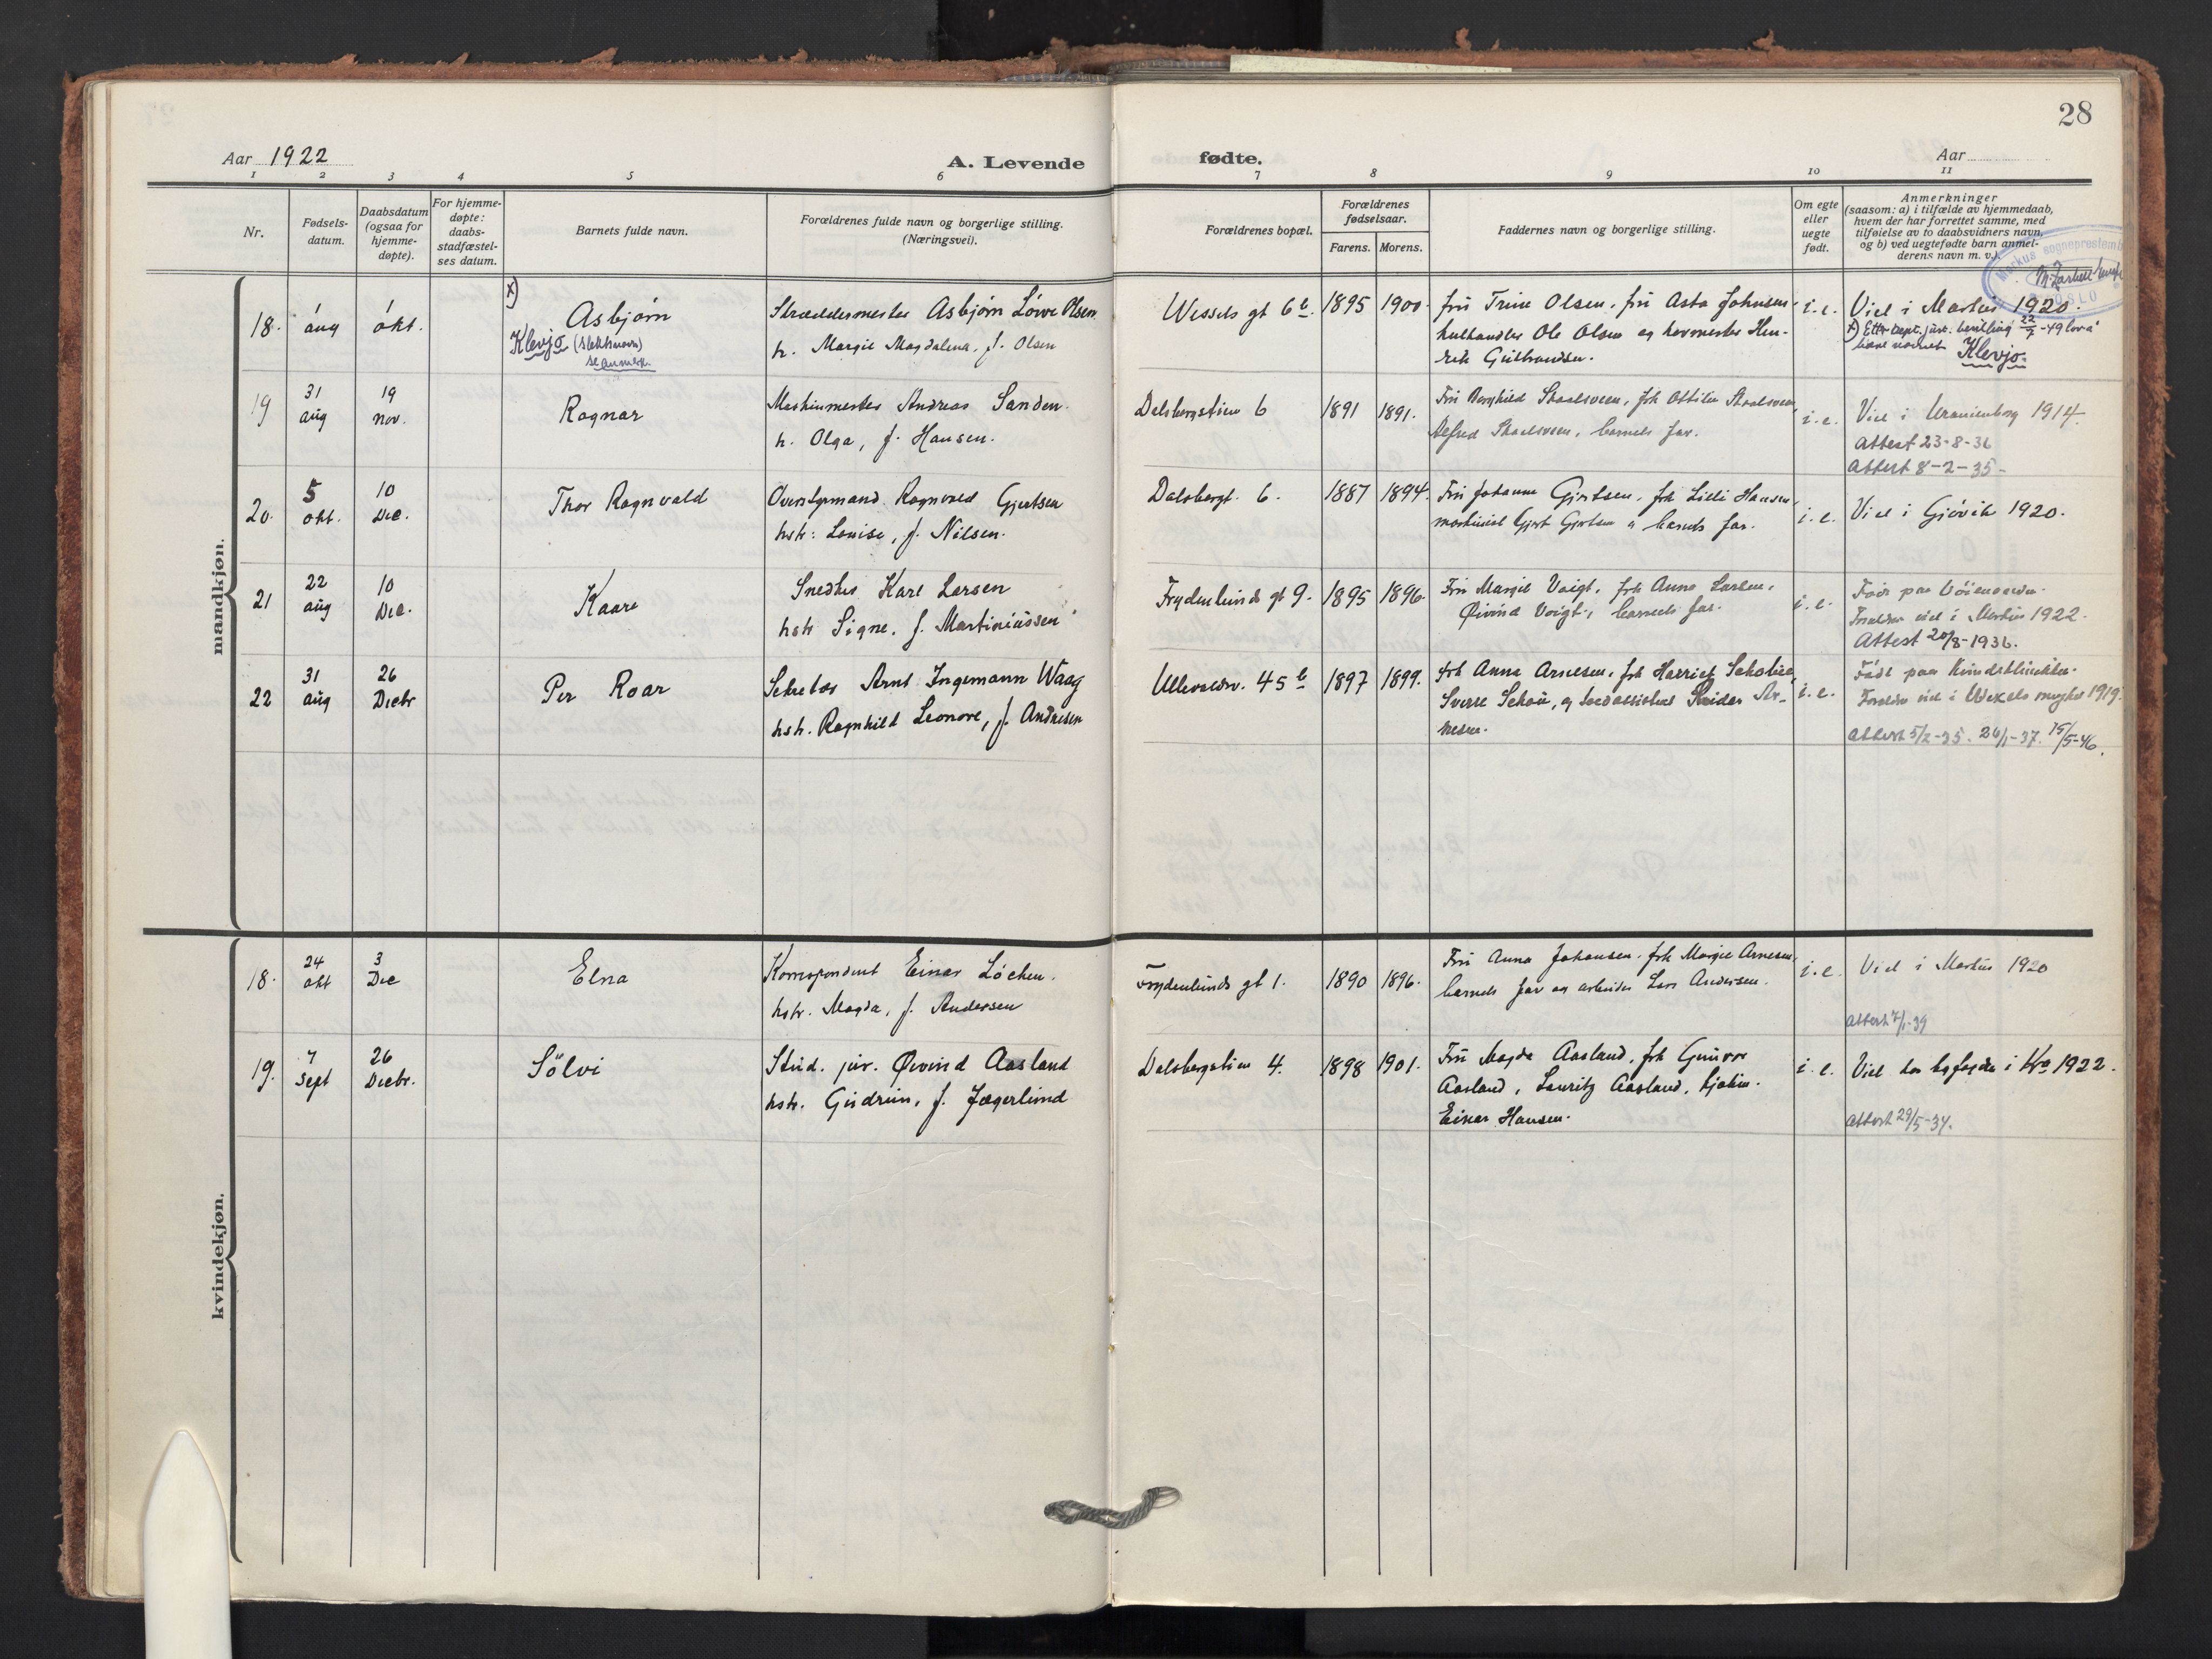 28
Aar 1922
A. Levende
fødte.
Aar
1 2 3 4 5 6 7 8 9 10 11
Nr.
Fødsels-
datum.
Daabsdatum
(ogsaa for
hjemme-
døpte).
For hjemme-
døpte:
daabs-
stadfæstel-
ses datum.
Barnets fulde navn.
Forældrenes fulde navn og borgerlige stilling.
(Næringsvei).
Forældrenes bopæl.
Forældrenes
fødselsaar.
Farens. Morens.
Faddernes navn og borgerlige stilling.
Om egte
eller
uegte
født.
Anmerkninger
(saasom: a) i tilfælde av hjemmedaab,
hvem der har forrettet samme, med
tilføielse av to daabsvidners navn,
og b) ved uegtefødte barn anmel-
derens navn m. v.).
Markus sogneprestemb
OSLO
mandkjøn.
18.
1 aug
1 okt.
x)
Asbjørn
Klevjo (slektsnavn)
se anmerk.
Skræddermester Asbjørn Løwe Olsen
h. Margit Magdalena, f. Olsen
Wessels gt 6b.
1895 1900
fru Trine Olsen, fru Asta Johnsen,
kulhandler Ole Olsen og hovmester Hen-
rik Gulbrandsen.
i. e.
Viel i Markus 1920.
x) Etter dept. just. bevilling 22/7 -49 lov å
bære navnet Klevjo.
19
31
aug
19
nov.
Ragnar
Maskinmester Andreas Sanden
h. Olga, f. Hansen.
Dalsbergstien 6
1891 1891.
Fru Borghild Skaalsveen, frk Ottilie Skaalsveen,
Alfred Skaalsveen, barnets far.
i. e.
Viel i Uranienborg 1914.
Attest 23-8-36
Attest 8-2-35-
20.
5
okt.
10
Dec.
Thor Ragnvald
Overstyrmand Ragnvald Gjertsen
hstr: Louise, f. Nilsen.
Dalsbergt. 6.
1887 1894.
Fru Johanne Gjertsen, frk Lilli Hansen,
maskinist Gjert Gjertsen og barnets far.
i. e.
Viel i Gjøvik 1920.
21
22
aug
10
Dec.
Kaare
Snedker Karl Larsen
hstr Signe, f. Martiniussen
Frydenlunds gt 9.
1895 1896.
Fru Margit Voigt, frk Anna Larsen,
Øivind Voigt, barnets far.
i. e.
Født paa
Forældre viel i Markus 1922.
Attest 20/8-1936.
22
31
aug
26
Decbr
Per Roar
Sekretær Arnt Ingemann Waag
hstr. Ragnhild Leonore, f. Andresen
Ullevaalsv. 45b
1897 1899.
Frk Anna Arnesen, frk Harriet
Sverre Schou, og Reidar Ar-
nesen.
i. e.
Født paa Kvindeklinikken.
Forældre viel i Wexels menighet 1919.
Attest 5/2-35. 26/1-37. 15/5-46.
kvindekjøn.
18.
24
okt
3
Dec
Elna
Korrespondent Einar Løchen.
hstr. Magda, f. Andersen
Frydenlunds gt 1.
1890 1896.
Fru Anna Johansen, frk Margit Arnesen,
barnets far og arbeider Lars Andersen.
i. e.
Viel i Markus 1920
Attest 7/1-39
19.
7
Sept
26
Decbr.
Sölvi
Stud. jur. Øivind Aasland
hstr. Gudrun, f. Jægerlund
Dalsbergstien 4.
1898 1901.
Fru Magda Aasland, frk Gunvor
Aasland, Lauritz Aasland, kjøbm.
Einar Hansen.
i. e.
Viel hos byfogden i Kra 1922.
Attest 29/5-34.